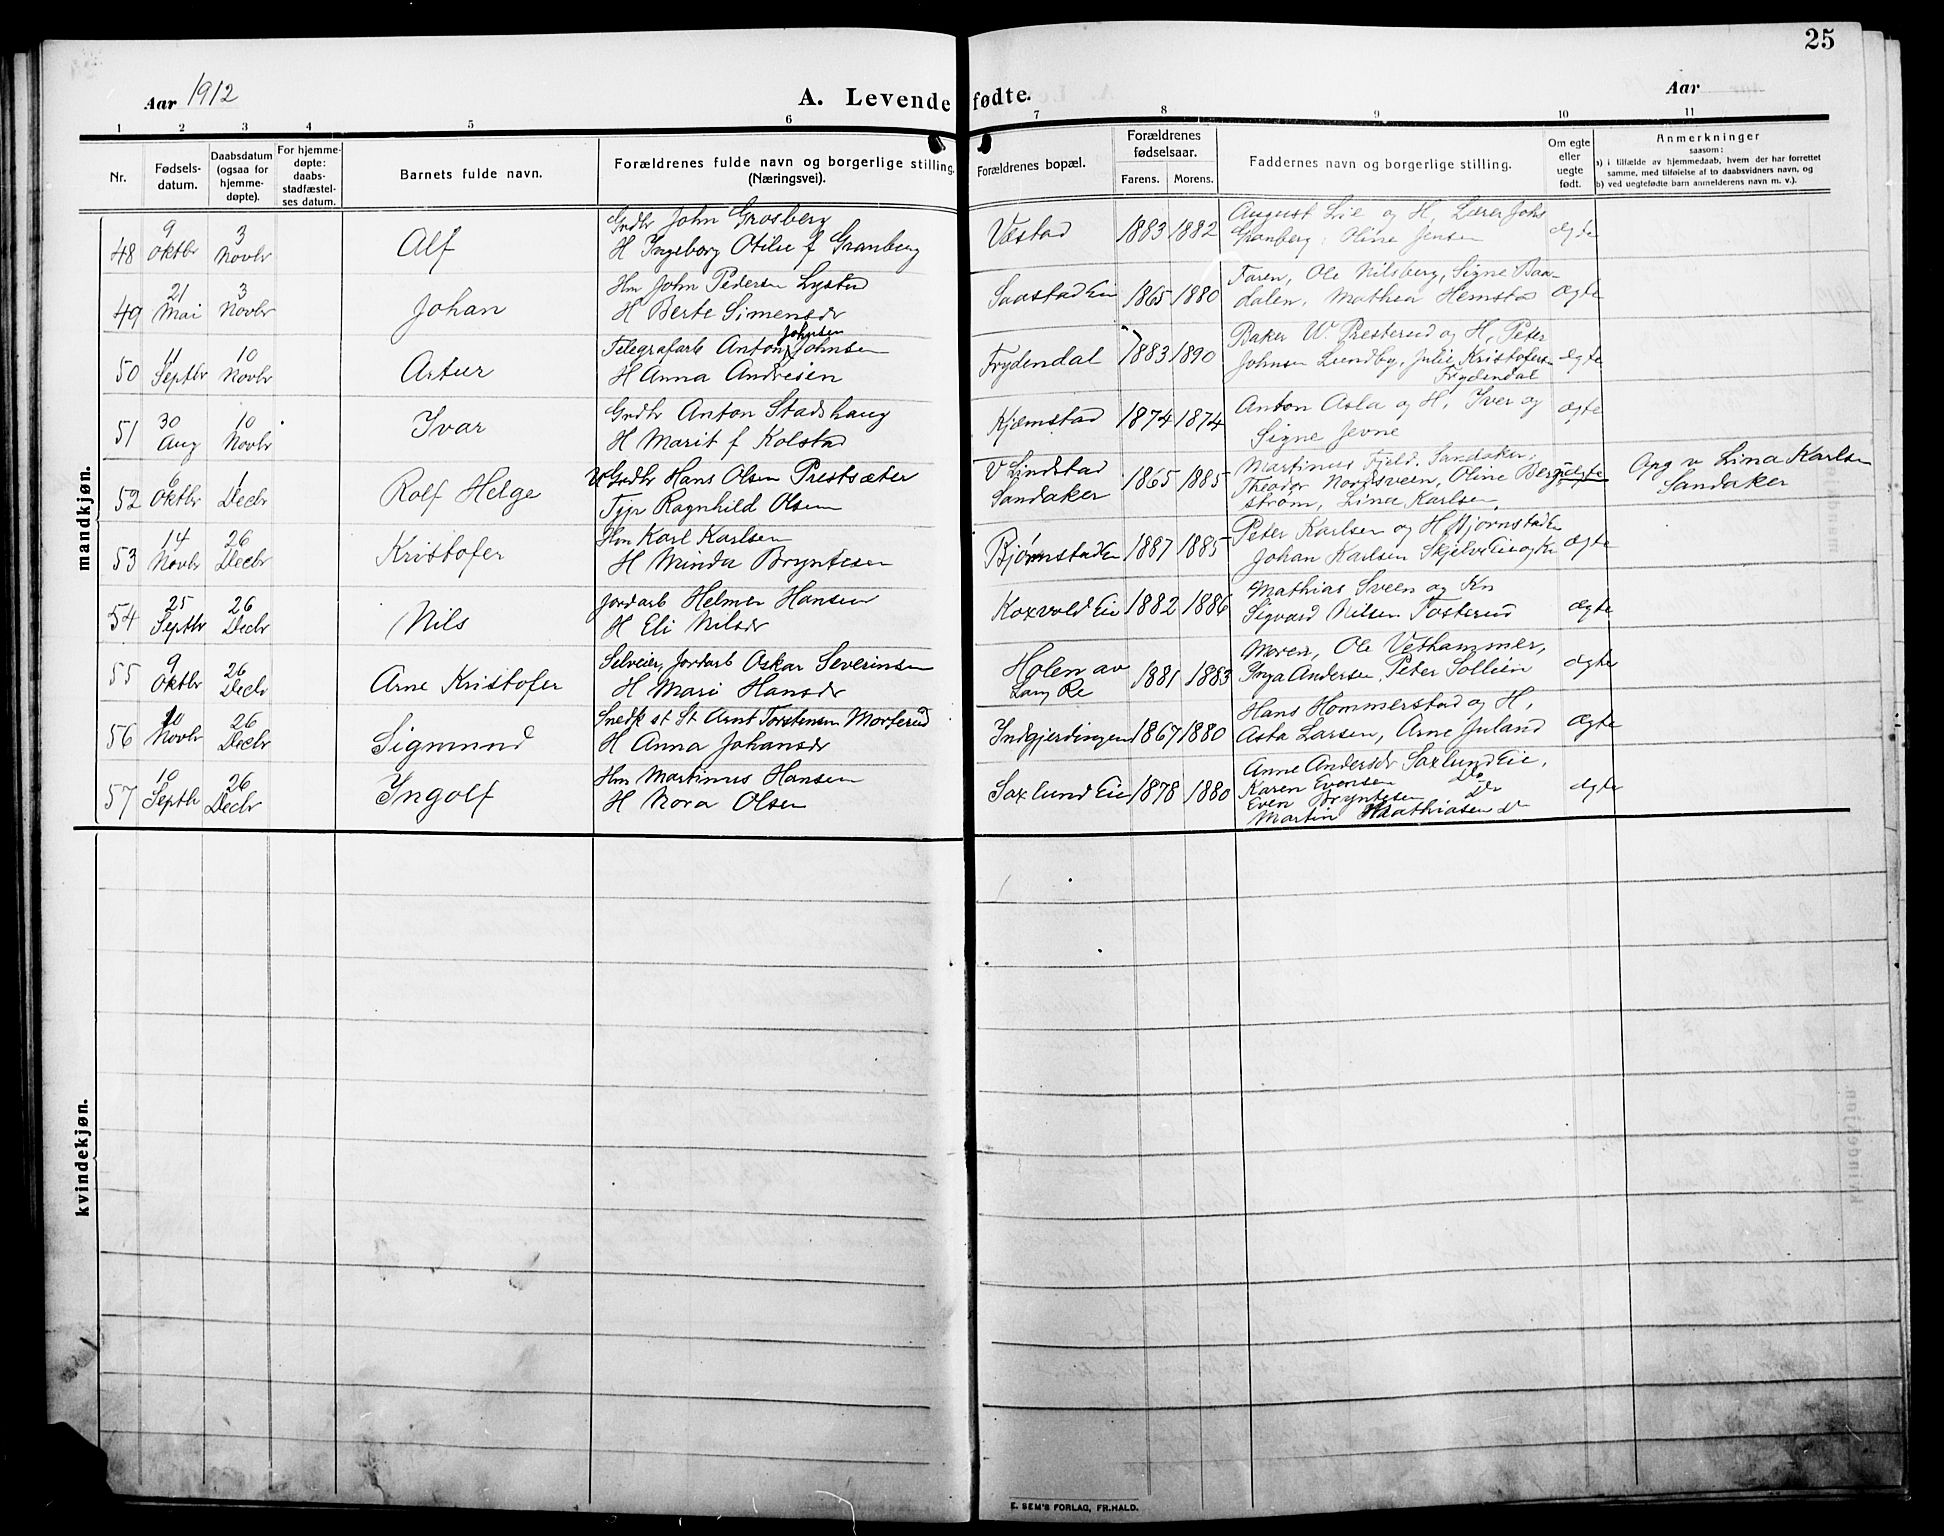 25
Aar 1912
A. Levende fødte.
Aar
1 2 3 4 5 6 7 8 9 10 11
Nr.
Fødsels-
datum.
Daabsdatum
(ogsaa for
hjemme-
døpte).
For hjemme-
døpte:
daabs-
stadfæstel-
ses datum.
Barnets fulde navn.
Forældrenes fulde navn og borgerlige stilling.
(Næringsvei).
Forældrenes bopæl.
Forældrenes
fødselsaar.
Farens. Morens.
Faddernes navn og borgerlige stilling.
Om egte
eller
uegte
født.
Anmerkninger
saasom:
a) i tilfælde av hjemmedaab, hvem der har forrettet
samme, med tilføielse af to daabsvidners navn, og
b) ved uegtefødte barn anmelderens navn m. v.).
mandkjøn.
48
9
Oktbr
3
Novbr
Alf
Grdbr John Grosberg
H Ingeborg Otilie f Granberg
Væstad
1883 1882
August Lie og H, Lærer Johs
Granberg, Oline Jensen
ægte
49
21
Mai
3
Novbr
Johan
Hm John Pedersen Lystad
H Berte Simensdr
Saastad Eie
1865 1880
Faren, Ole Nilsberg, Signe Baa-
dalen, Mathea Hemstad
ægte
50
11
Septbr
10
Novbr
Artur
Johnsen
Telegrafarb Anton Johnsen
H Anna Andresen
Frydendal
1883 1890
Baker W. Presterud og H, Peter
Johnsen Lundby, Julie Kristofersen
Frydendal
ægte
51
30
Aug
10
Novbr
Ivar
Grdbr Anton Stadshaug
H Marit f Kolstad
Kjæmstad
1874 1874
Anton Asla og H, Iver og
Signe Jevne
ægte
52
6
Oktbr
1
Decbr
Rolf Helge
Grdbr Hans Olsen Prestsæter
Ragnhild Olsen
V Lindstad
Sandaker
1865 1885
Martinus Fjeld, Sandaker,
Theodor Nordsveen, Oline Berg-
strøm, Lina Karlsen
uægte
Opg v Lina Karlsen
Sandaker
53
14
Novbr
26
Decbr
Kristofer
Hm Karl Karlsen
H Minda Bryntesen
Bjørnstad Eie
1887 1885
Peter Karlsen og H Bjørnstad Eie
Johan Karlsen Skjelve Eie og Kn
ægte
54
25
Septbr
26
Decbr
Nils
Jordarb Helmer Hansen
H Eli Nilsdr
Koxvold Eie
1882 1886
Mathias Sveen og Kn
Sigvard Nilsen Fosterud
ægte
55
9
Oktbr
26
Decbr
Arne Kristofer
Selveier, Jordarb Oskar Severinsen
H Mari Hansdr
Holen av
Lang Re
1881 1883
Moren, Ole Vethammer,
Inga Andersen, Peter Sollien
ægte
56
10
Novbr
26
Decbr
Sigmund
Snedk st St Arnt Torstensen Morterud
H Anna Johansdr
Indgjerdingen
1867 1880
Hans Hommerstad og H,
Asta Larsen, Arne Juland
ægte
57
10
Septbr
26
Decbr
Ingolf
Hm Martinus Hansen
H Nora Olsen
Saxlund Eie
1878 1880
Anne Andersdr Saxlund Eie,
Karen Evensen Do
Even Bryntesen Do
Martin Mathiasen Do
ægte
kvindekjøn.
E. SEM'S FORLAG, FR.HALD.